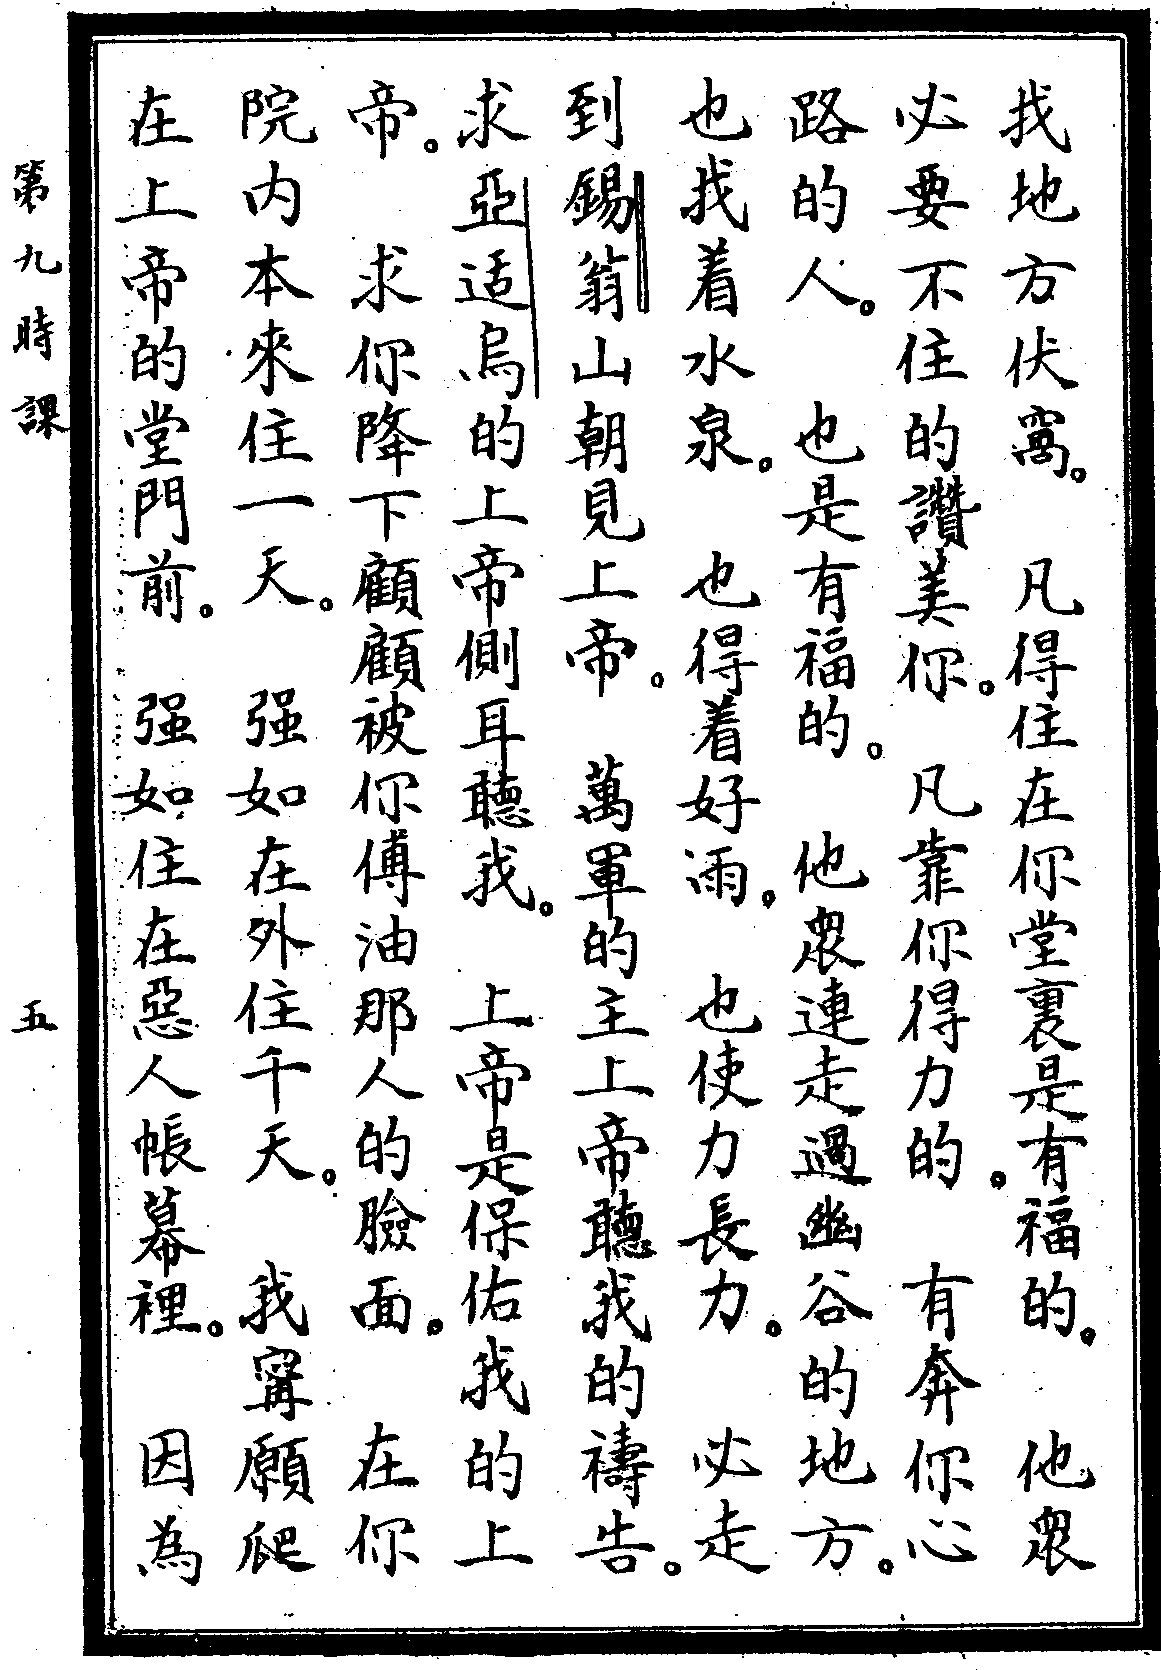 找地方伏窩。凡得住在你堂裏是有福的。他衆
必要不住的讚美你。凡靠你得力的。有奔你心
路的人。也是有福的。他衆連走過幽谷的地方。
也找着水泉。也得着好雨。也使力長力。必走
到錫翁山朝見上帝。萬軍的主上帝聽我的禱告。
求亞适烏的上帝側耳聽我。上帝是保佑我的上
帝。求你降下顧顧被你傅油那人的臉面。在你
院内本來住一天。强如在外住千天。我寗願爬
在上帝的堂門前。强如住在惡人帳幕裡。因為
第九時課
五